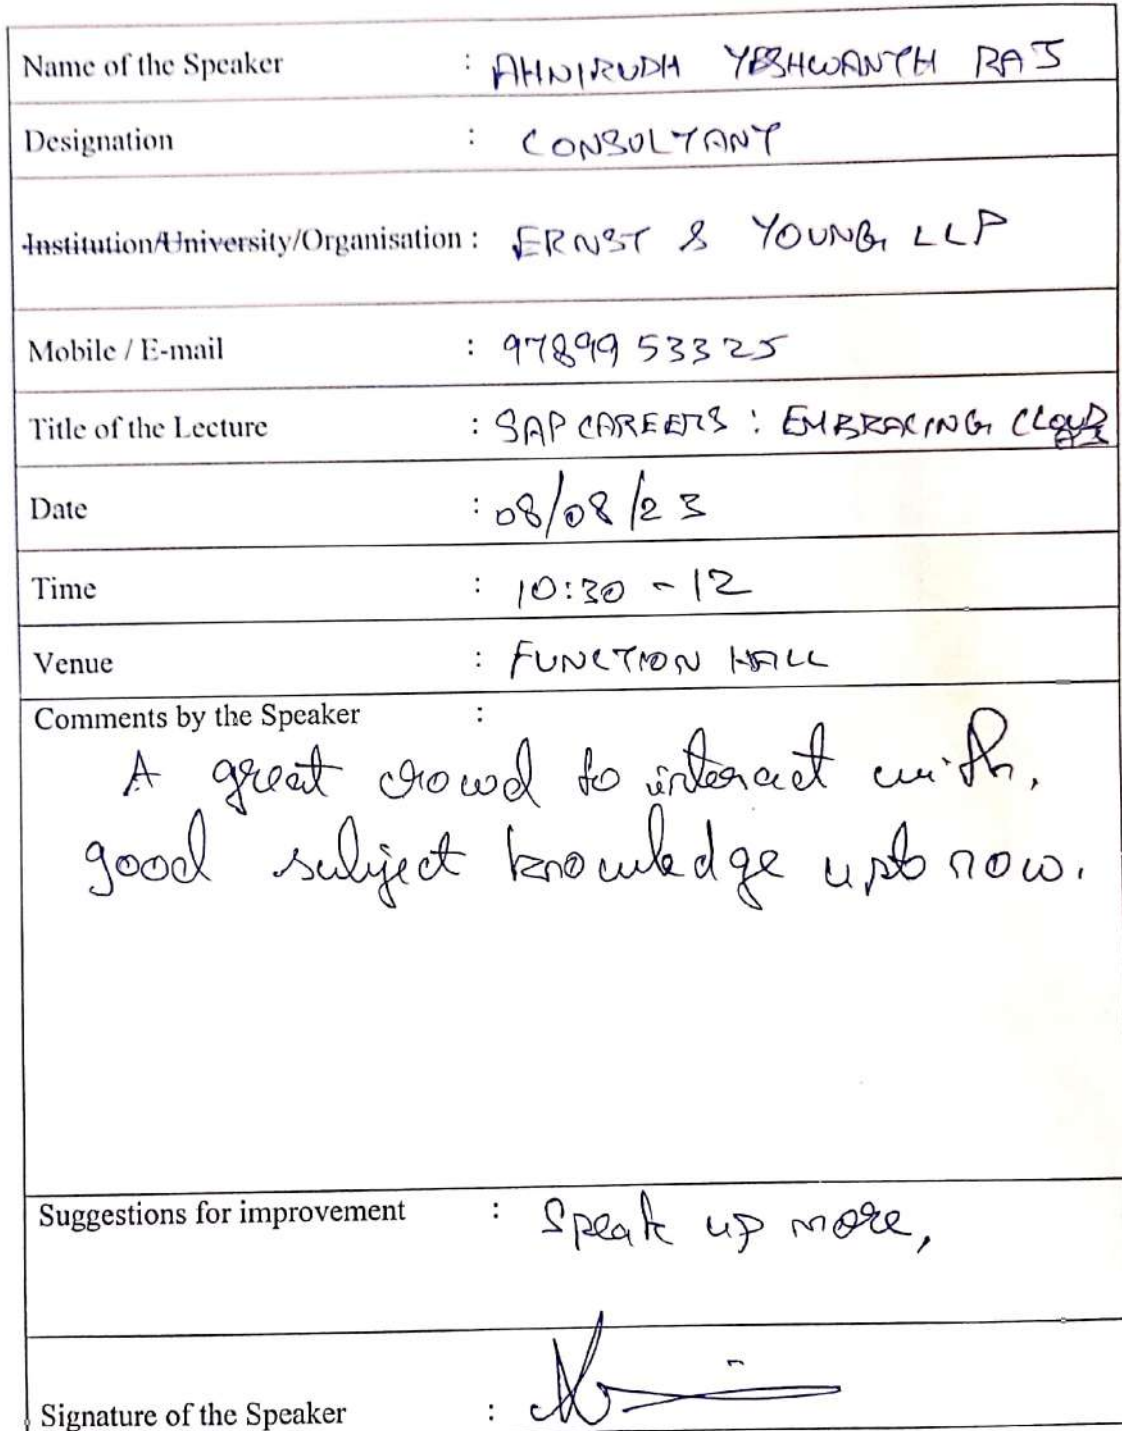 Name of the Speaker : AHNIRUDH YESHWANTH RAJ
Designation : CONSULTANT
Institution/University/Organisation : ERNST & YOUNG LLP
Mobile / E-mail : 97899 53325
Title of the Lecture : SAP CAREERS : EMBRACING CLOUD
Date : 08/08/23
Time : 10:30 - 12
Venue : FUNCTION HALL
Comments by the Speaker :
A great crowd to interact with,
good subject knowledge upto now.
Suggestions for improvement : Speak up more,
Signature of the Speaker :